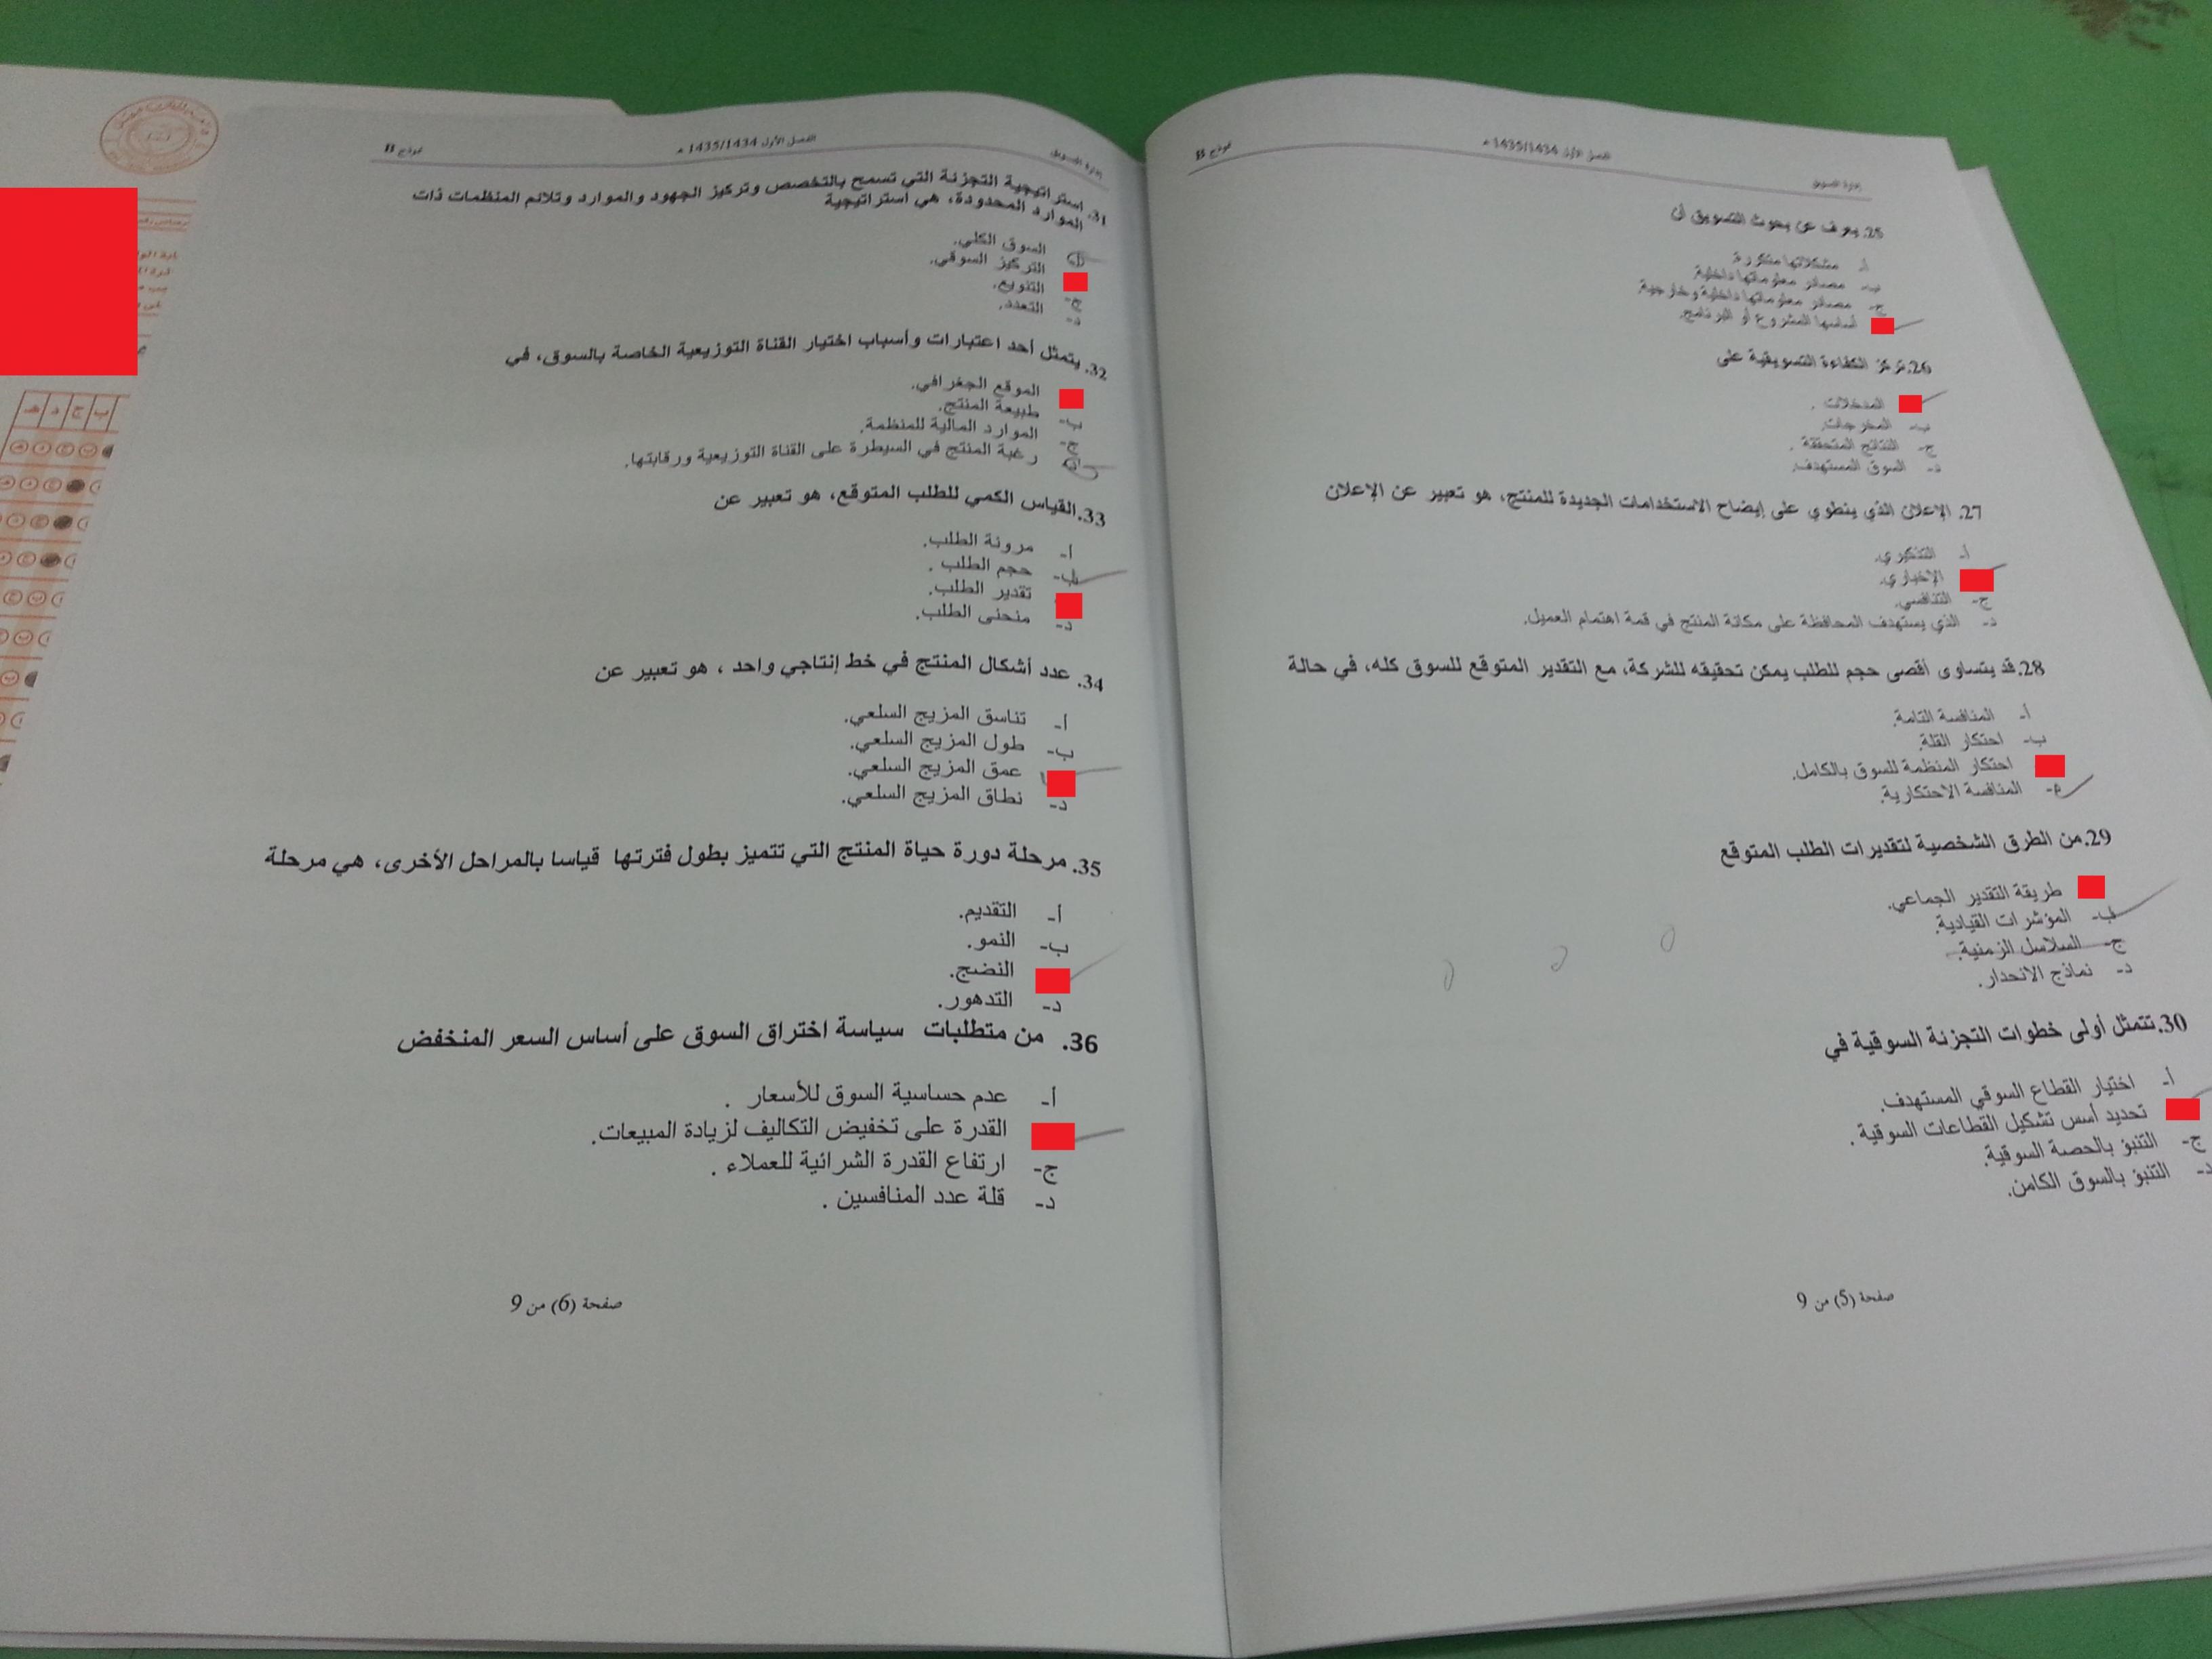 إدارة التسويق
الفصل الأول 1435/1434 هـ
نموذج B
25. يعرف عن بحوث التسويق أن
أ- مشكلاتها متكررة.
ب- مصادر معلوماتها داخلية.
ج- مصادر معلوماتها داخلية وخارجية.
أساسها المشروع أو البرنامج.
26. تركز الكفاءة التسويقية على
المدخلات .
ب- المخرجات.
ج- النتائج المتحققة .
د- السوق المستهدف.
27. الإعلان الذي ينطوي على إيضاح الاستخدامات الجديدة للمنتج، هو تعبير عن الإعلان
أ- التذكيري.
الإخباري.
ج- التنافسي.
د- الذي يستهدف المحافظة على مكانة المنتج في قمة اهتمام العميل.
28. قد يتساوى أقصى حجم للطلب يمكن تحقيقه للشركة، مع التقدير المتوقع للسوق كله، في حالة
أ- المنافسة التامة.
ب- احتكار القلة.
احتكار المنظمة للسوق بالكامل.
المنافسة الاحتكارية.
29. من الطرق الشخصية لتقديرات الطلب المتوقع
طريقة التقدير الجماعي.
ب- المؤشرات القيادية.
ج- السلاسل الزمنية.
د- نماذج الانحدار.
30. تتمثل أولى خطوات التجزئة السوقية في
أ- اختيار القطاع السوقي المستهدف.
تحديد أسس تشكيل القطاعات السوقية .
ج- التنبؤ بالحصة السوقية.
د- التنبؤ بالسوق الكامن.
صفحة (5) من 9
إدارة التسويق
الفصل الأول 1435/1434 هـ
نموذج B
31. استراتيجية التجزئة التي تسمح بالتخصص وتركيز الجهود والموارد وتلائم المنظمات ذات
الموارد المحدودة، هي استراتيجية
أ- السوق الكلي.
التركيز السوقي.
ج- التنويع.
د- التعدد.
32. يتمثل أحد اعتبارات وأسباب اختيار القناة التوزيعية الخاصة بالسوق، في
الموقع الجغرافي.
ب- طبيعة المنتج.
ج- الموارد المالية للمنظمة.
د- رغبة المنتج في السيطرة على القناة التوزيعية ورقابتها.
33. القياس الكمي للطلب المتوقع، هو تعبير عن
أ- مرونة الطلب.
ب- حجم الطلب .
تقدير الطلب.
د- منحنى الطلب.
34. عدد أشكال المنتج في خط إنتاجي واحد ، هو تعبير عن
أ- تناسق المزيج السلعي.
ب- طول المزيج السلعي.
عمق المزيج السلعي.
د- نطاق المزيج السلعي.
35. مرحلة دورة حياة المنتج التي تتميز بطول فترتها قياسا بالمراحل الأخرى، هي مرحلة
أ- التقديم.
ب- النمو.
النضج.
د- التدهور.
36. من متطلبات سياسة اختراق السوق على أساس السعر المنخفض
أ- عدم حساسية السوق للأسعار .
القدرة على تخفيض التكاليف لزيادة المبيعات.
ج- ارتفاع القدرة الشرائية للعملاء .
د- قلة عدد المنافسين .
صفحة (6) من 9
ب ج د هـ